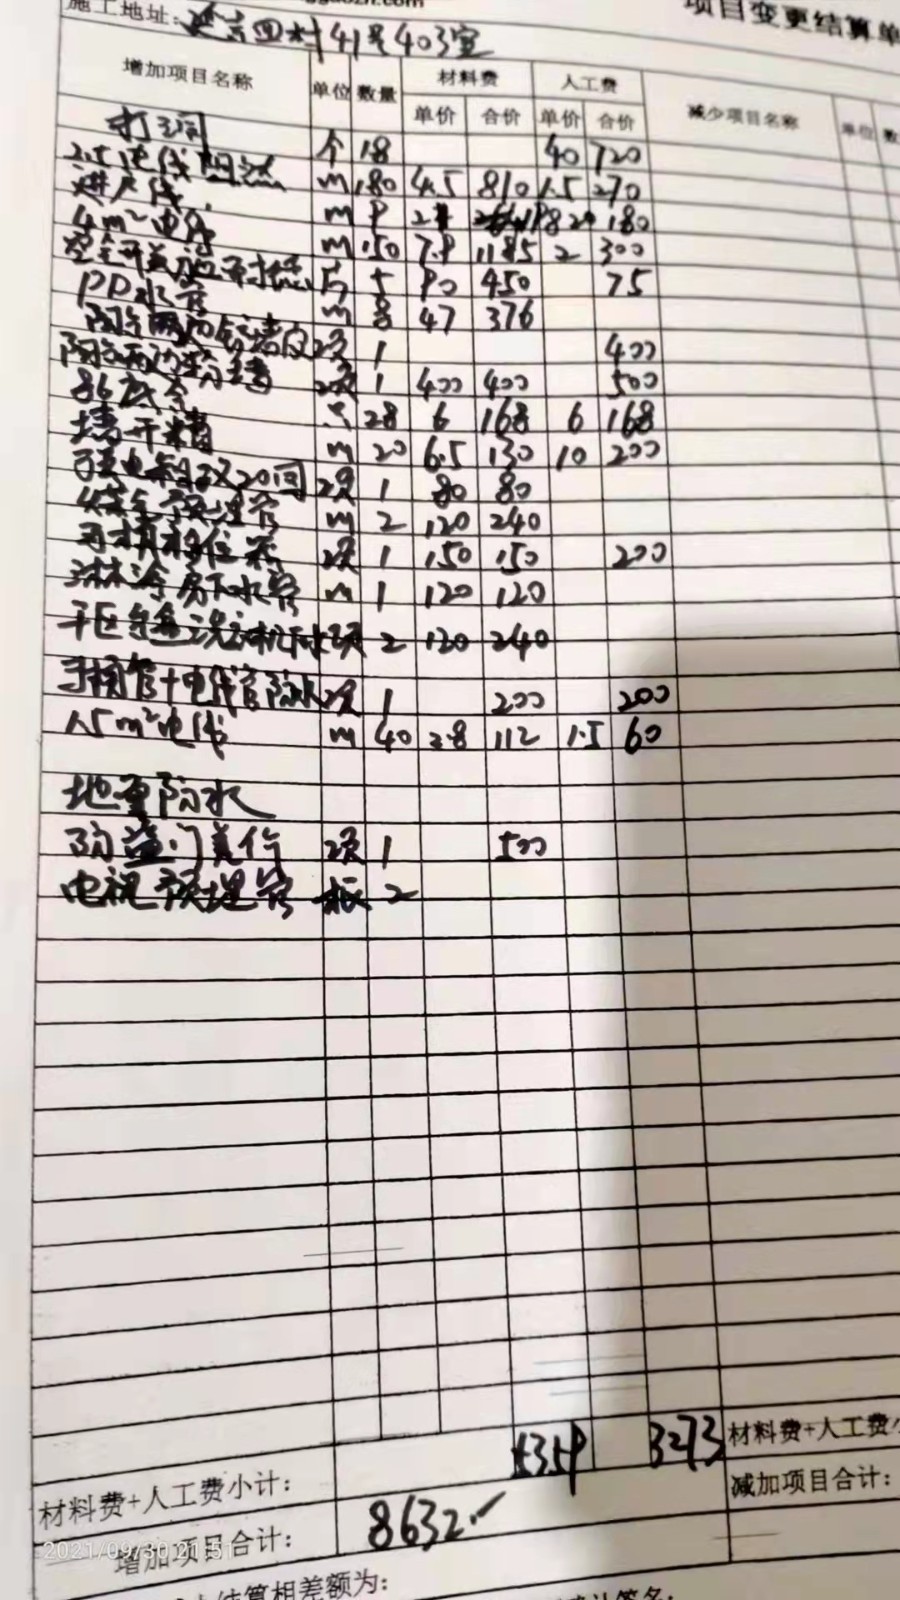 项目变更结算单
施工地址: 延吉四村41号403室
增加项目名称 单位 数量 材料费 人工费 减少项目名称 单位 数
单价 合价 单价 合价
打洞 个 18 40 720
2.5电线 m 180 4.5 810 1.5 270
进户线 m 9 20 180
4m²电线 m 150 7.9 1185 2 300
5 90 450 75
PP水管 m 8 47 376
项 1 400
项 1 400 400 500
86底盒 只 28 6 168 6 168
墙开槽 m 20 6.5 130 10 200
强电箱 20回 项 1 80 80
预埋管 m 2 120 240
马桶移位器 项 1 150 150 200
淋浴房下水管 m 1 120 120
项 2 120 240
马桶管+电线管防水 项 1 200 200
1.5m²电线 m 40 2.8 112 1.5 60
地面防水
防盗门差价 项 1 500
电视预埋管 根 2
材料费+人工费小计: 5359 3273 材料费+人工费
增加项目合计: 8632 减加项目合计:
2021/09/30 21:51
结算相差额为: